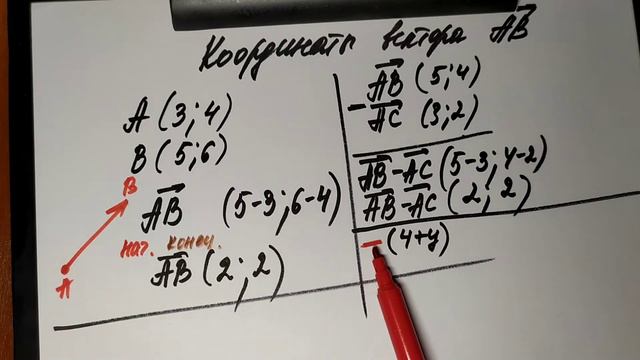 Координаты вектора AB
A (3;4)
B (5;6)
B
AB (5-3;6-4)
нач. конец.
A
AB (2;2)
AB (5;4)
- AC (3;2)
AB-AC (5-3;4-2)
AB-AC (2;2)
- (4+y)